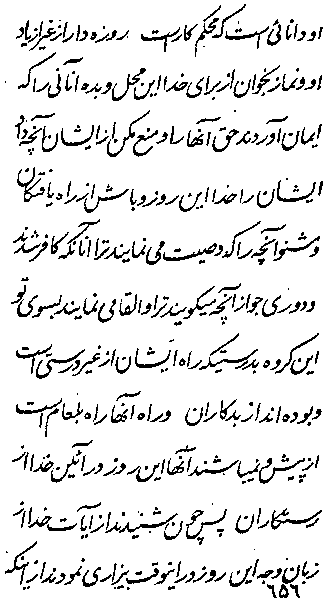 او دانائی است که محکم کار است روزه دار از غیر از یاد
او و نماز بخوان از برای خدا این محل و بده انانی را که
ایمان آوردند حق آنها را و منع مکن از ایشان آنچه داد
ایشان را خدا این روز و باش از راه یافتگان
و مشنو آنچه را که وصیت می نمایند ترا انانکه کافر شدند
و دوری جو از آنچه میگویند ترا و القا می نمایند بسوی تو
این گروه بدرستیکه راه ایشان از غیر درستی است
و بوده اند از بدکاران و راه آنها راه بلعام است
از پیش و نمیباشند آنها این روز در آئین خدا از
رستگاران پس چون شنیدند از آیات خدا از
زبان وجه این روز در اینوقت بیزاری نمودند از آنکه
۶۵۶